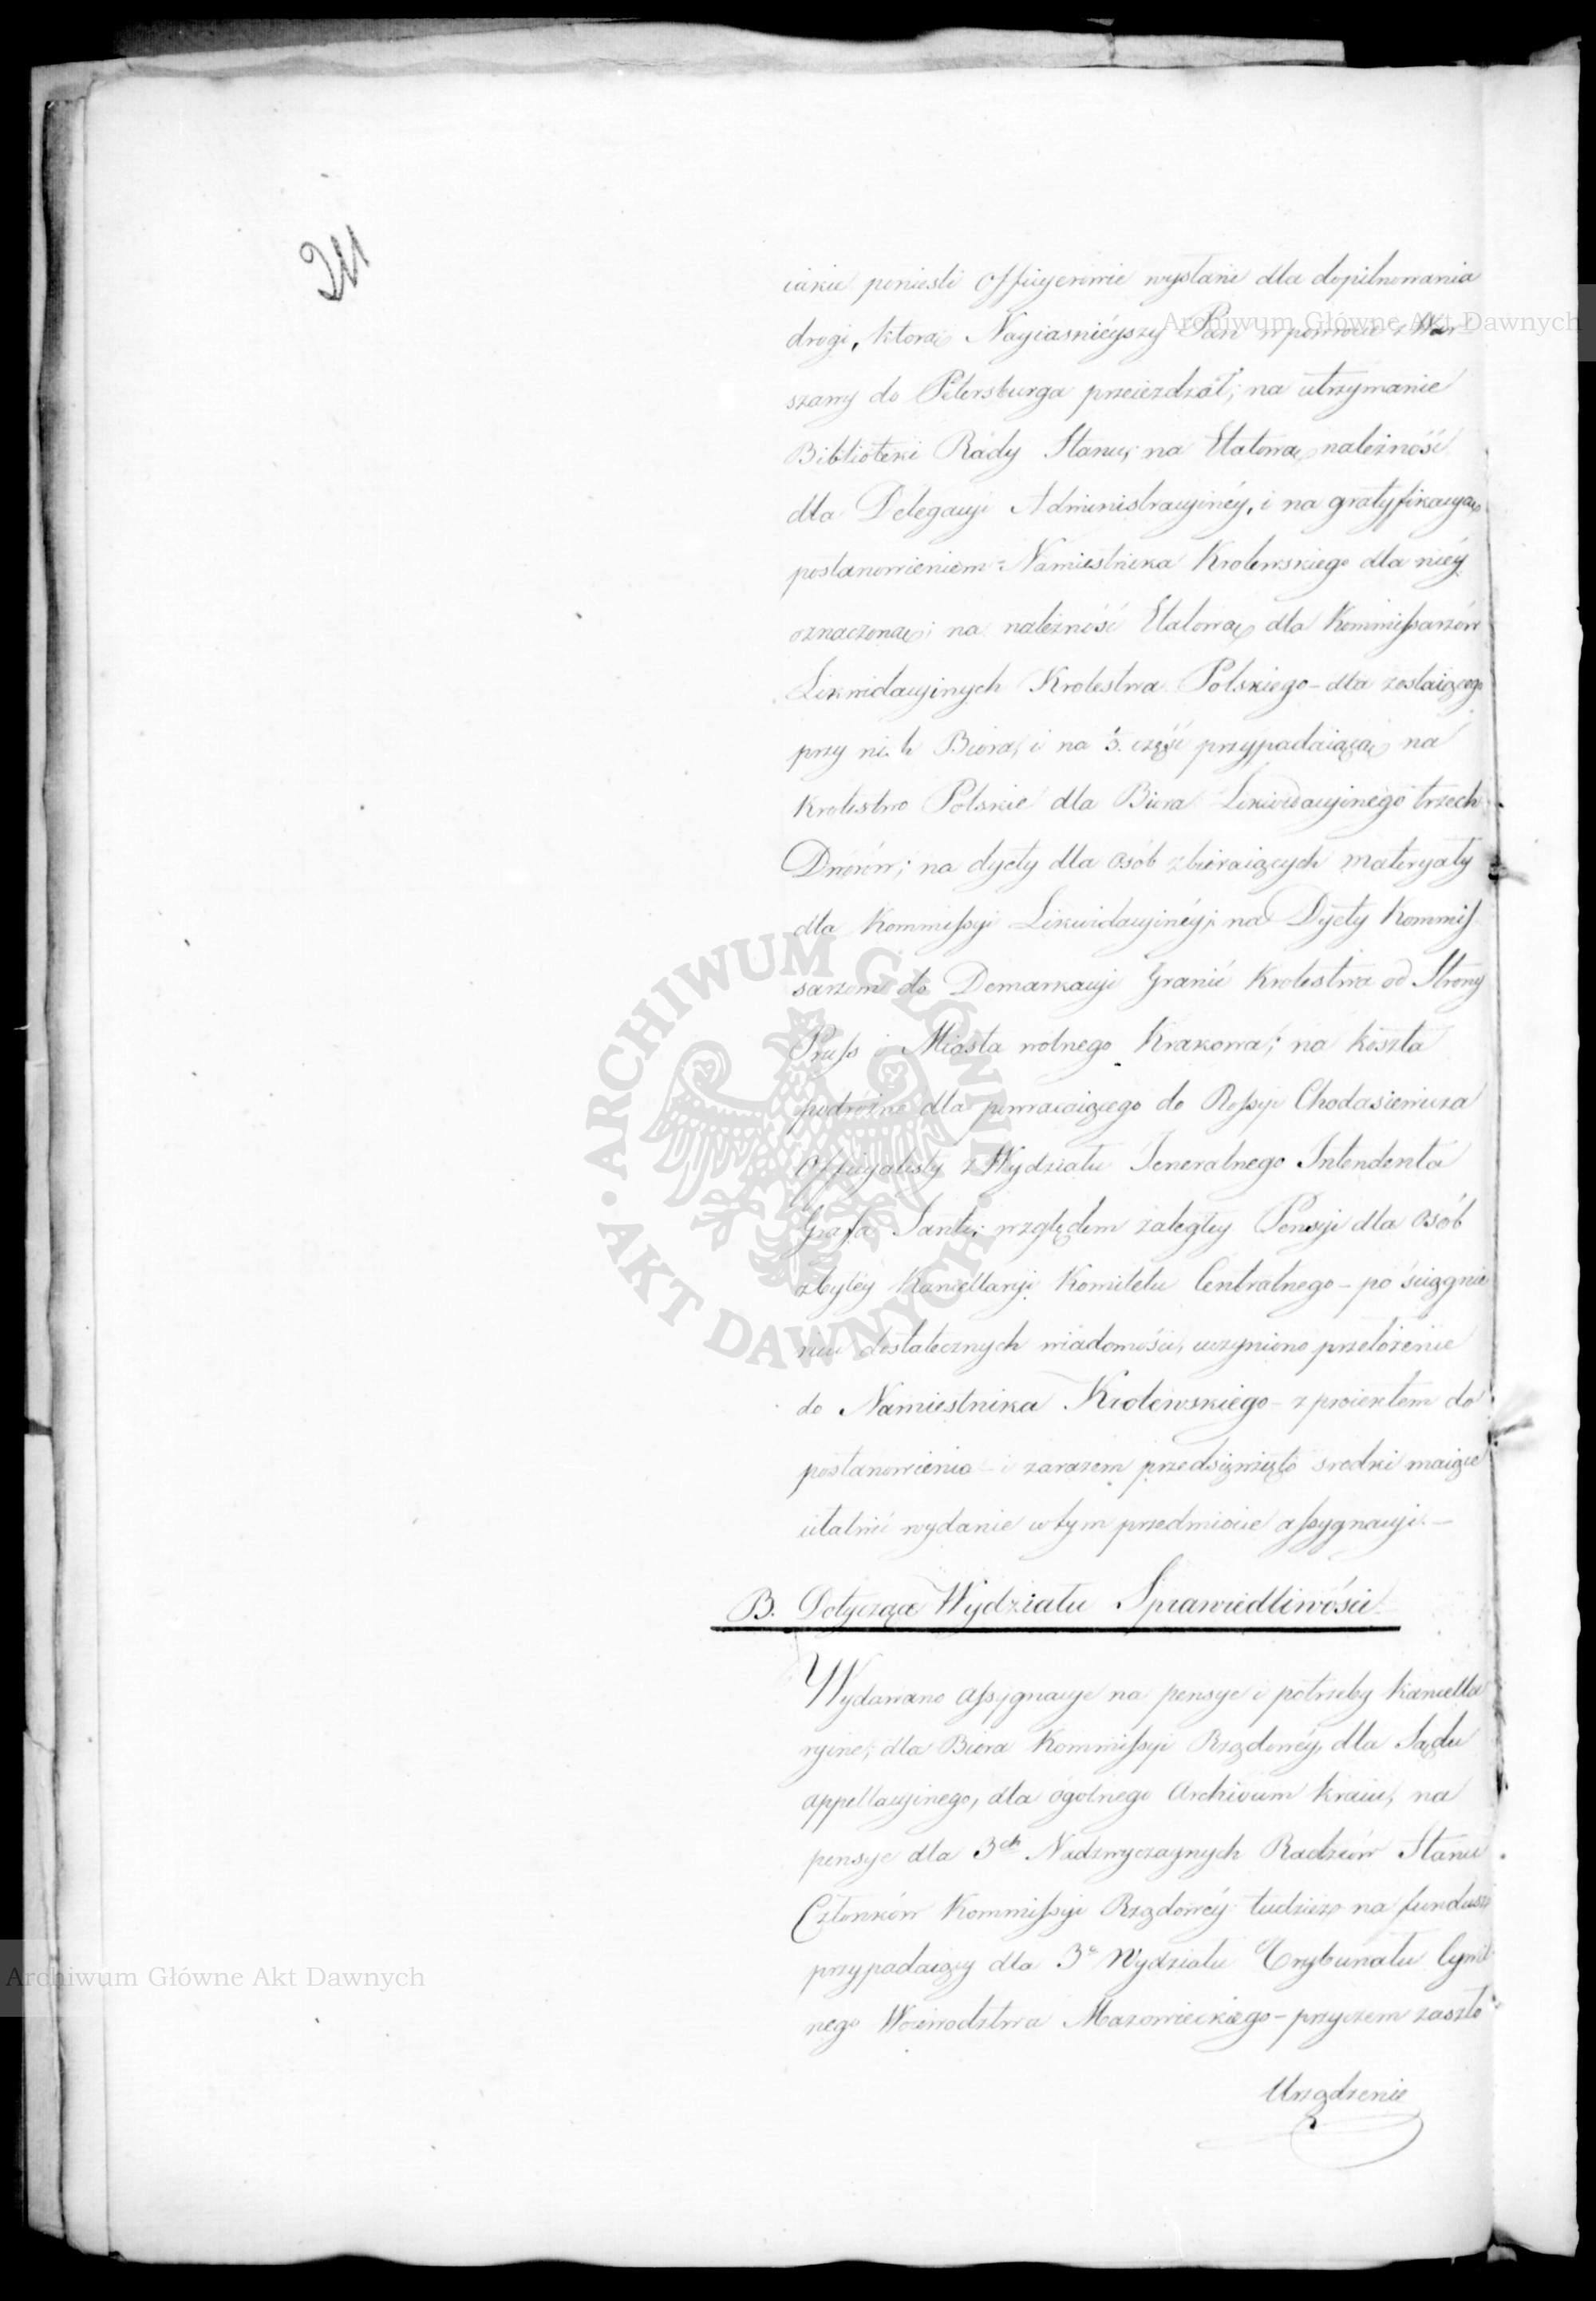 211
iakie ponieśli Officyerowie wysłani dla dopilnowania
drogi, ktorą Nayiaśnieyszy Pan w powrocie z War-
szawy do Petersburga przeieżdżał; na utrzymanie
Biblioteki Rady Stanu; na Etatową należność
dla Delegacyi Administracyiney, i na gratyfikacyą
postanowieniem Namiestnika Krolewskiego dla niéy
oznaczoną; na należność Etatową dla Kommissarzów
Likwidacyinych Krolestwa Polskiego - dla zostaiącego
przy nich Biora, i na 3. część przypadaiącą na
Krolestwo Polskie dla Biora Likwidacyinego trzech
Dworów; na dyety dla osób zbieraiących materyały
dla Kommissyi Likwidacyinéy; na Dyety Kommis
sarzom do Demarkacyi Granic Krolestwa od Strony
Pruss i Miasta wolnego Krakowa; na koszta
podrożne dla powracaiącego do Rossyi Chodasiewicza
Officyalisty z Wydziału Jeneralnego Intendenta
Grafa Santi; względem zaległey Pensyi dla osób
zbyłéy Kancellaryi Komitetu Centralnego - po ściągnie
niu dostatecznych wiadomości, uczyniono przełożenie
do Namiestnika Krolewskiego - z proiektem do
postanowienia - i zarazem przedsięwzięto srodki maiące
ułatwić wydanie w tym przedmiocie assygnacyi. -
B. Dotyczące Wydziału Sprawiedliwości.
Wydawano assygnacye na pensye i potrzeby kancella
ryine, dla Biora Kommissyi Rządowéy, dla Sądu
appellacyinego, dla ogolnego Archivum kraiu, na
pensye dla 3ch Nadzwyczaynych Radzców Stanu
Członków Kommissyi Rządowéy tudzież na fundusz
przypadaiący dla 3o Wydziału Trybunału Cywil
nego Woiewodztwa Mazowieckiego - przyczem zaszło
Urządzenie
Archiwum Główne Akt Dawnych
Archiwum Główne Akt Dawnych
ARCHIWUM GŁÓWNE AKT DAWNYCH